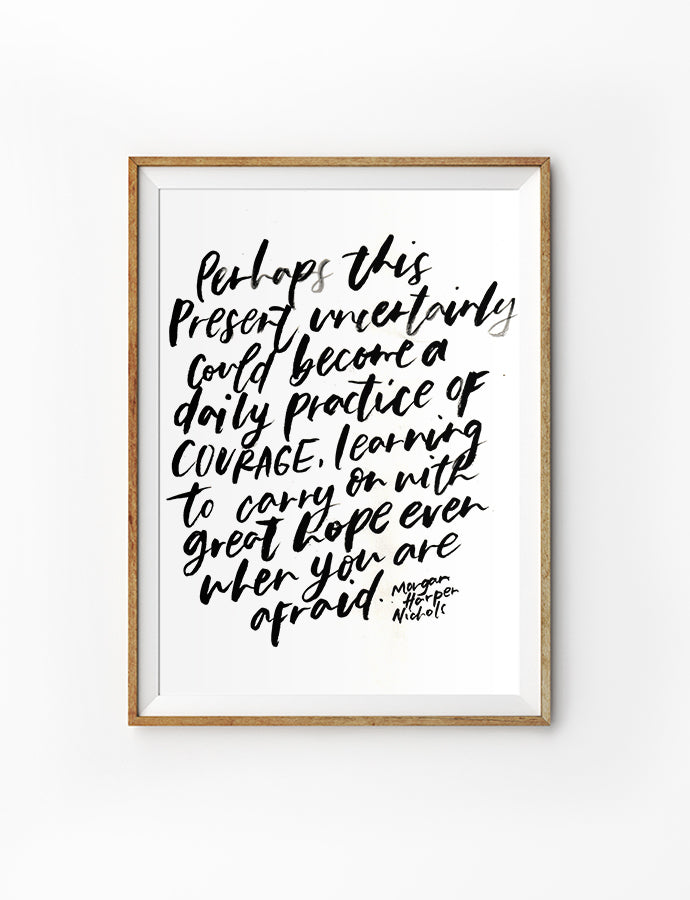 Perhaps this
Present uncertainly
could become a
daily practice of
COURAGE, learning
to carry on with
great hope even
when you are
afraid.
Morgan
Harper
Nichols